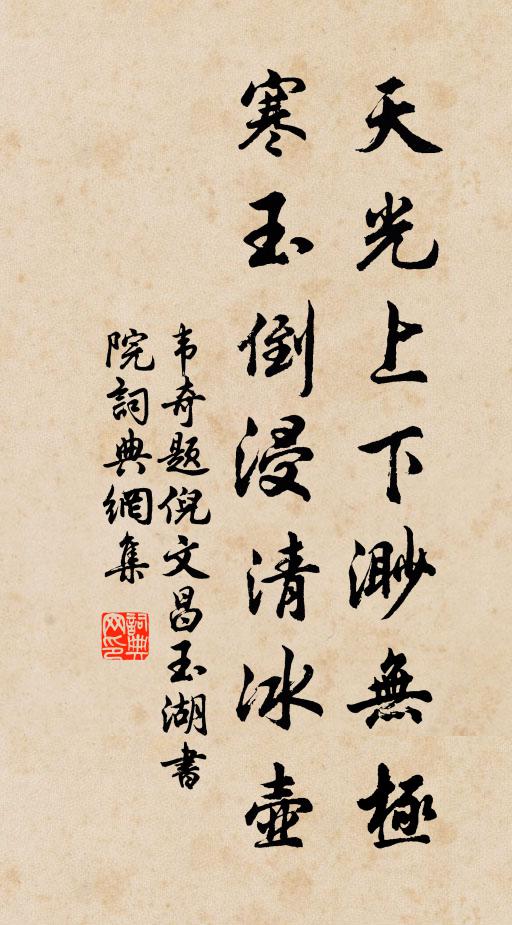 天光上下渺無極
寒玉倒浸清冰壺
韦奇题倪文昌玉湖書
院詞典網集
詞典
网印